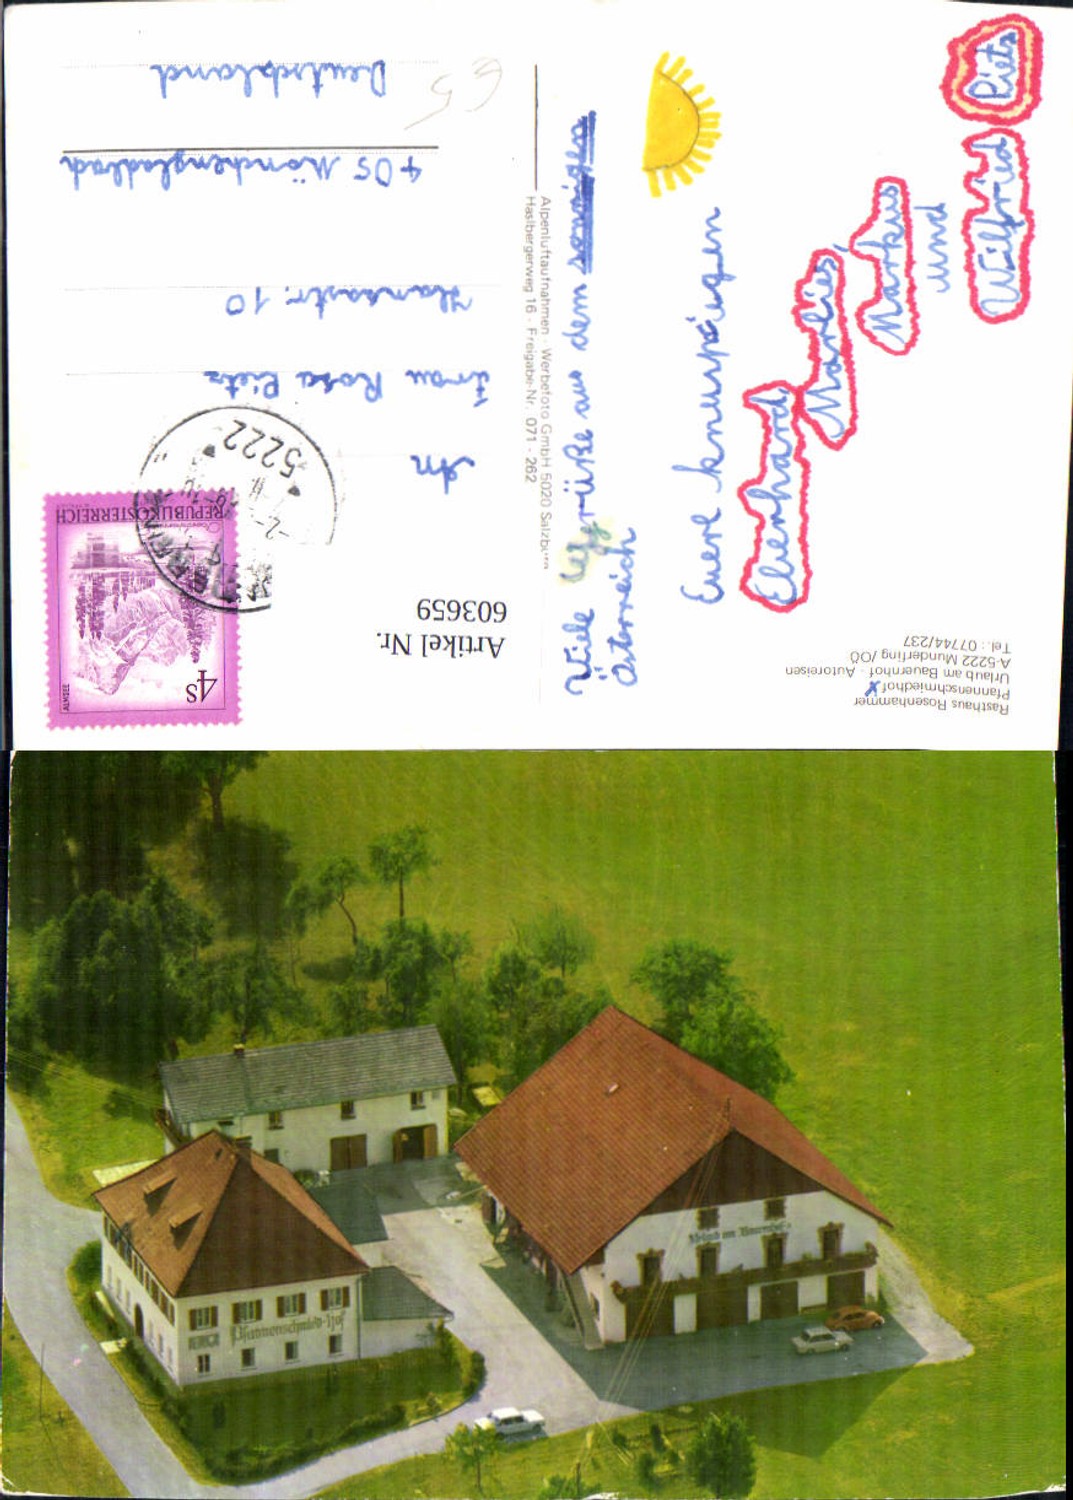 Rasthaus Rosenhammer
Pfannenschmiedhof
Urlaub am Bauernhof - Autoreisen
A-5222 Munderfing /OÖ
Tel.: 07744/237
Viele Grüße aus dem sonnigen
Österreich
Euere knusprigen
Ekenhard,
Marlies,
Markus
und
Wilfried Rietz
Alpenluftaufnahmen - Werbefoto GmbH 5020 Salzburg
Haslbergerweg 16 - Freigabe-Nr. 071 - 262
Artikel Nr.
603659
4S
ALMSEE
REPUBLIK ÖSTERREICH
5222
An
Frau Rosa Rietz
Hansastr. 10
405 Mönchengladbach
Deutschland
€5
Pfannenschmied-Hof
Urlaub am Bauernhof